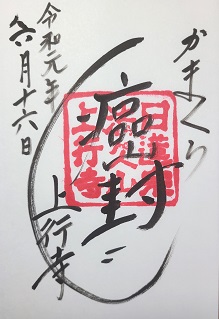 かまくら
癌封じ
上行寺
令和元年
六月十六日
日蓮宗
上行寺